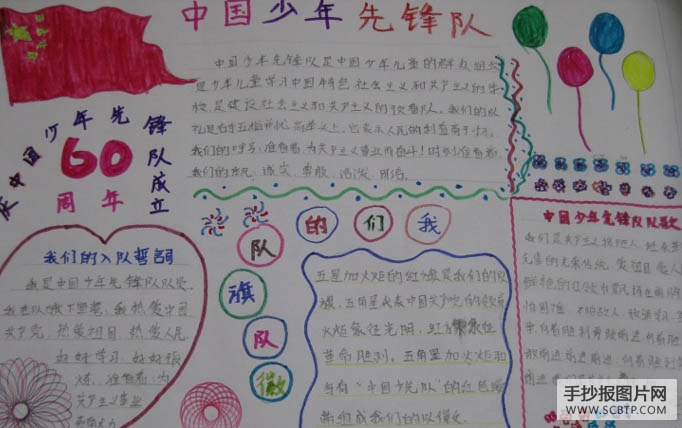 中国少年先锋队
中国少年先锋队是中国少年儿童的群众组织
是少年儿童学习中国特色社会主义和共产主义的学
校,是建设社会主义和共产主义的预备队。我们的队
礼是右手五指并拢,高举头上,它表示人民的利益高于一切。
我们的呼号:准备着,为共产主义事业而奋斗!时刻准备着。
我们的作风:诚实、勇敢、活泼、团结。
庆中国少年先锋队成立
60
周年
我们的入队誓词
我是中国少年先锋队队员,
我在队旗下宣誓,我热爱中国
共产党,热爱祖国,热爱人民,
好好学习,好好锻
炼,准备着:为
共产主义事业
贡献力
我们的
队旗队徽
五星加火炬的红旗是我们的队
旗,五角星代表中国共产党的领导
火炬象征光明,红旗象征
革命胜利。五角星加火炬和
写有“中国少先队”的红色绶
带组成我们的队徽。
中国少年先锋队队歌
我们是共产主义接班人,继承革
先辈的光荣传统,爱祖国,爱人
鲜艳的红领巾飘扬在前胸
怕困难,不怕敌人,顽强学习
向着胜利勇敢前进,向着胜
敢前进前进,向着胜利
手抄报图片网
WWW.SCBTP.COM